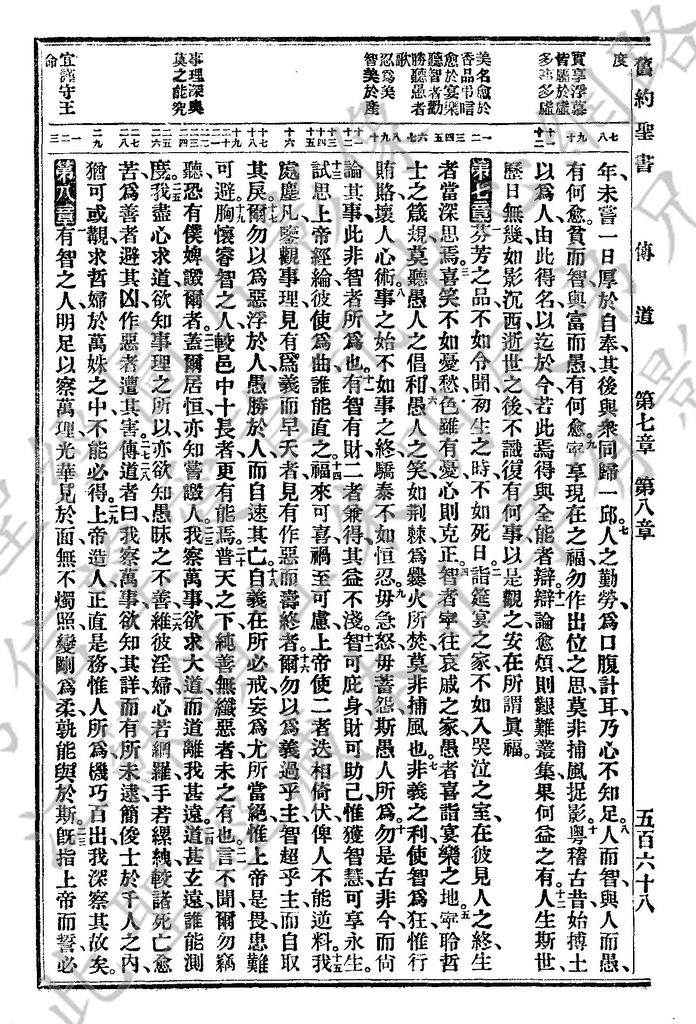 舊約聖書 傳道 第七章 第八章 五百六十八
度
實享浮慕
皆屬於虛
多事多虛
美名愈於
香品弔唁
愈於宴樂
聽智者勸
勝聽愚者
歌
忍爲美
智美於產
事理深奧
莫之能究
宜謹守王
命
年未嘗一日厚於自奉其後與衆同歸一邱。七人之勤勞爲口腹計耳乃心不知足。八人而智與人而愚
有何愈貧而智與富而愚有何愈。九寧享現在之福勿作出位之思莫非捕風捉影。十粵稽古昔始摶土
以爲人由此得名以迄於今若此焉得與全能者辯。十一辯論愈煩則艱難叢集果何益之有。十二人生斯世
歷日無幾如影沉西逝世之後不識復有何事以是觀之安在所謂眞福。
第七章 一芬芳之品不如令聞初生之時不如死日。二詣筵宴之家不如入哭泣之室在彼見人之終生
者當深思焉。三喜笑不如憂愁色雖有憂心則克正。四智者寧往哀戚之家愚者喜詣宴樂之地。五寧聆哲
士之箴規莫聽愚人之倡和。六愚人之笑如荆棘爲爨火所焚莫非捕風也。七非義之利使智爲狂惟行
賄賂壞人心術。八事之始不如事之終驕泰不如恒忍。九毋急怒毋蓄怨斯愚人所爲。十勿是古非今而尚
論其事此非智者所爲也。十一有智有財二者兼得其益不淺。十二智可庇身財可助己惟獲智慧可享永生。
十三試思上帝經綸彼使爲曲誰能直之。十四福來可喜禍至可慮上帝使二者迭相倚伏俾人不能逆料。十五我
處塵凡鑒觀事理見有爲義而早夭者見有作惡而壽終者。十六爾勿以爲義過乎主智超乎主而自取
其戾。十七爾勿以爲惡浮於人愚勝於人而自速其亡。十八自義在所必戒妄爲尤所當絕惟上帝是畏患難
可避。十九胸懷睿智之人較邑中十長者更有能焉。二十普天之下純善無纖惡者未之有也。二一言不聞爾勿竊
聽恐有僕婢譭爾者。二二蓋爾居恒亦知嘗譭人。二三我察萬事欲求大道而道離我甚遠。二四道甚玄遠誰能測
度。二五我盡心求道欲知事理之所以亦欲知愚昧之不善。二六維彼淫婦心若網羅手若縲絏較諸死亡愈
苦爲善者避其凶作惡者遭其害。二七傳道者曰我察萬事欲知其詳而有所未逮。二八簡俊士於千人之内
猶可或觀求哲婦於萬姝之中不能必得。二九上帝造人正直是務惟人所爲機巧百出我深察其故矣。
第八章 一有智之人明足以察萬理光華見於面無不燭照變剛爲柔孰能與於斯。二旣指上帝而誓必